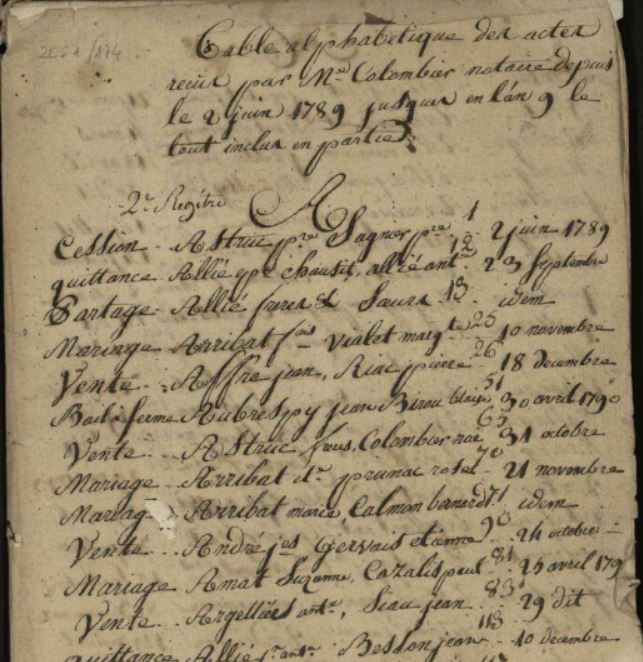 2E51/174
Table alphabetique des actes
recus par Me Colombier notaire depuis
le 2 juin 1789 jusques en l'an 9 le
tout inclus en partie
2e Registre
A
Cession - Astruc pre Sagner pre 1 - 2 juin 1789
quittance Allié ype chausit, allié ante 12 - 23 Septembre
Partage - Allié freres & Soeurs 13 - idem
Mariage - Arribat fois vialet margte 25 - 10 novembre
Vente - Affre jean, Riac pierre 26 - 18 decembre
Bail a ferme Aubrespy jean Birou blaise 51 - 30 avril 1790
Vente - Astruc fois, Colombier 65 - 31 octobre
Mariage - Arribat et. prunac rose 70 - 21 novembre
Mariag - Arribat marie, Calmon bernard 71 idem
Vente - André jes Gervais etienne 90 - 24 octobre
Mariage Amat Suzanne, Cazalis paul 81 - 25 avril 179
Vente - Argelliers ante, Siau jean 83 - 29 dit
quittance Allié jn ante Besson jean 113 - 10 decembre